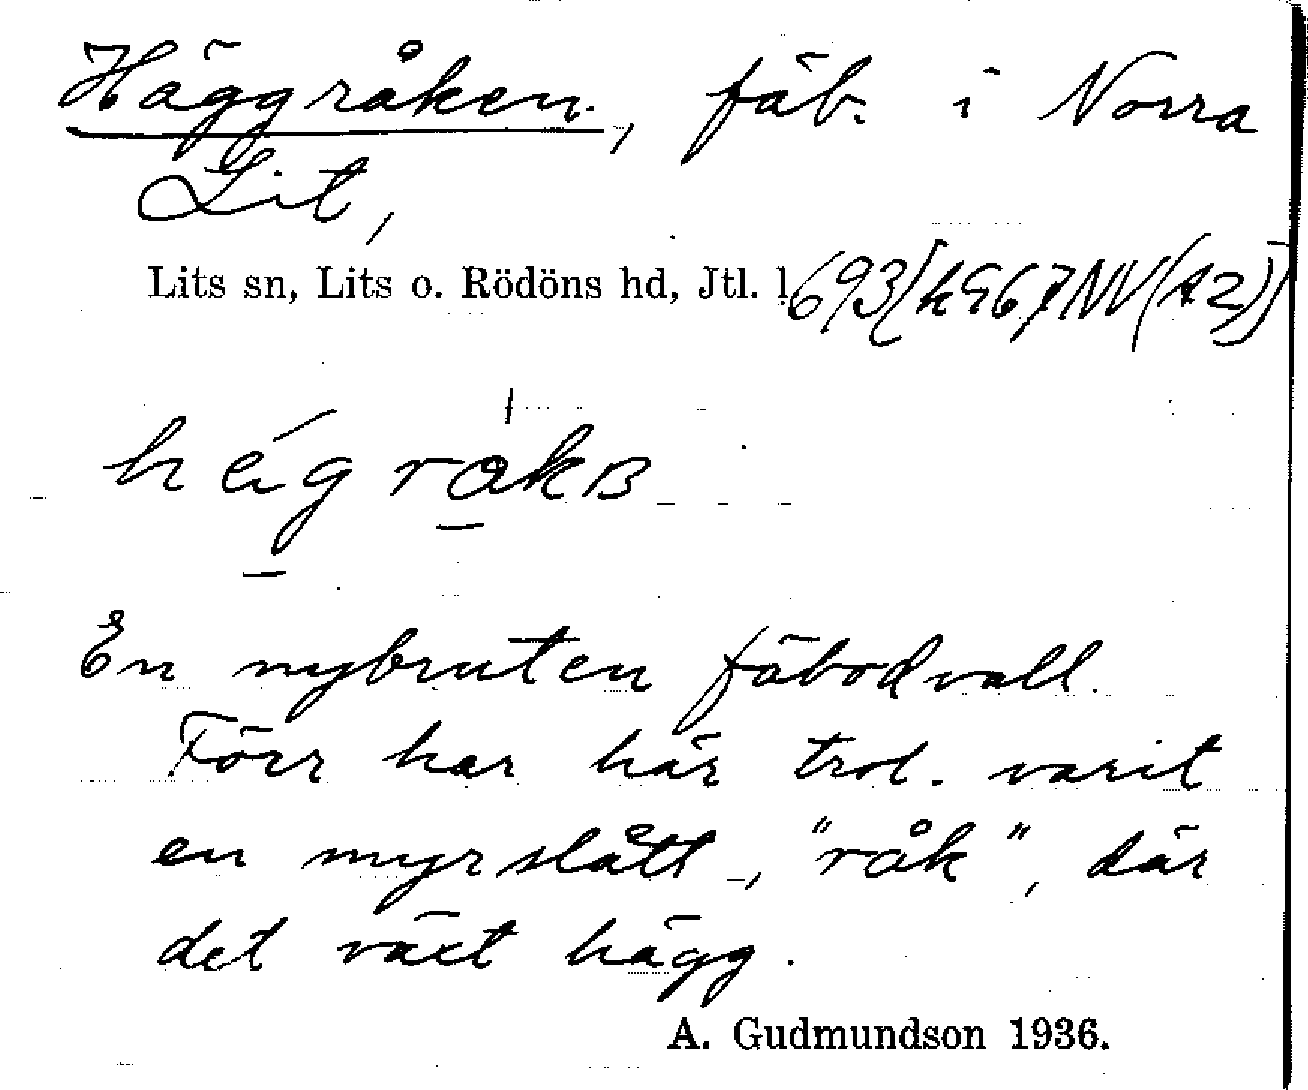 Häggråken, fäb. i Norra
Lit,
Lits sn, Lits o. Rödöns hd, Jtl. l.
hägråkɴ
En nybruten fäbodvall.
Förr har här trol. varit
en myrslått, "råk", där
det växt hägg.
A. Gudmundson 1936.